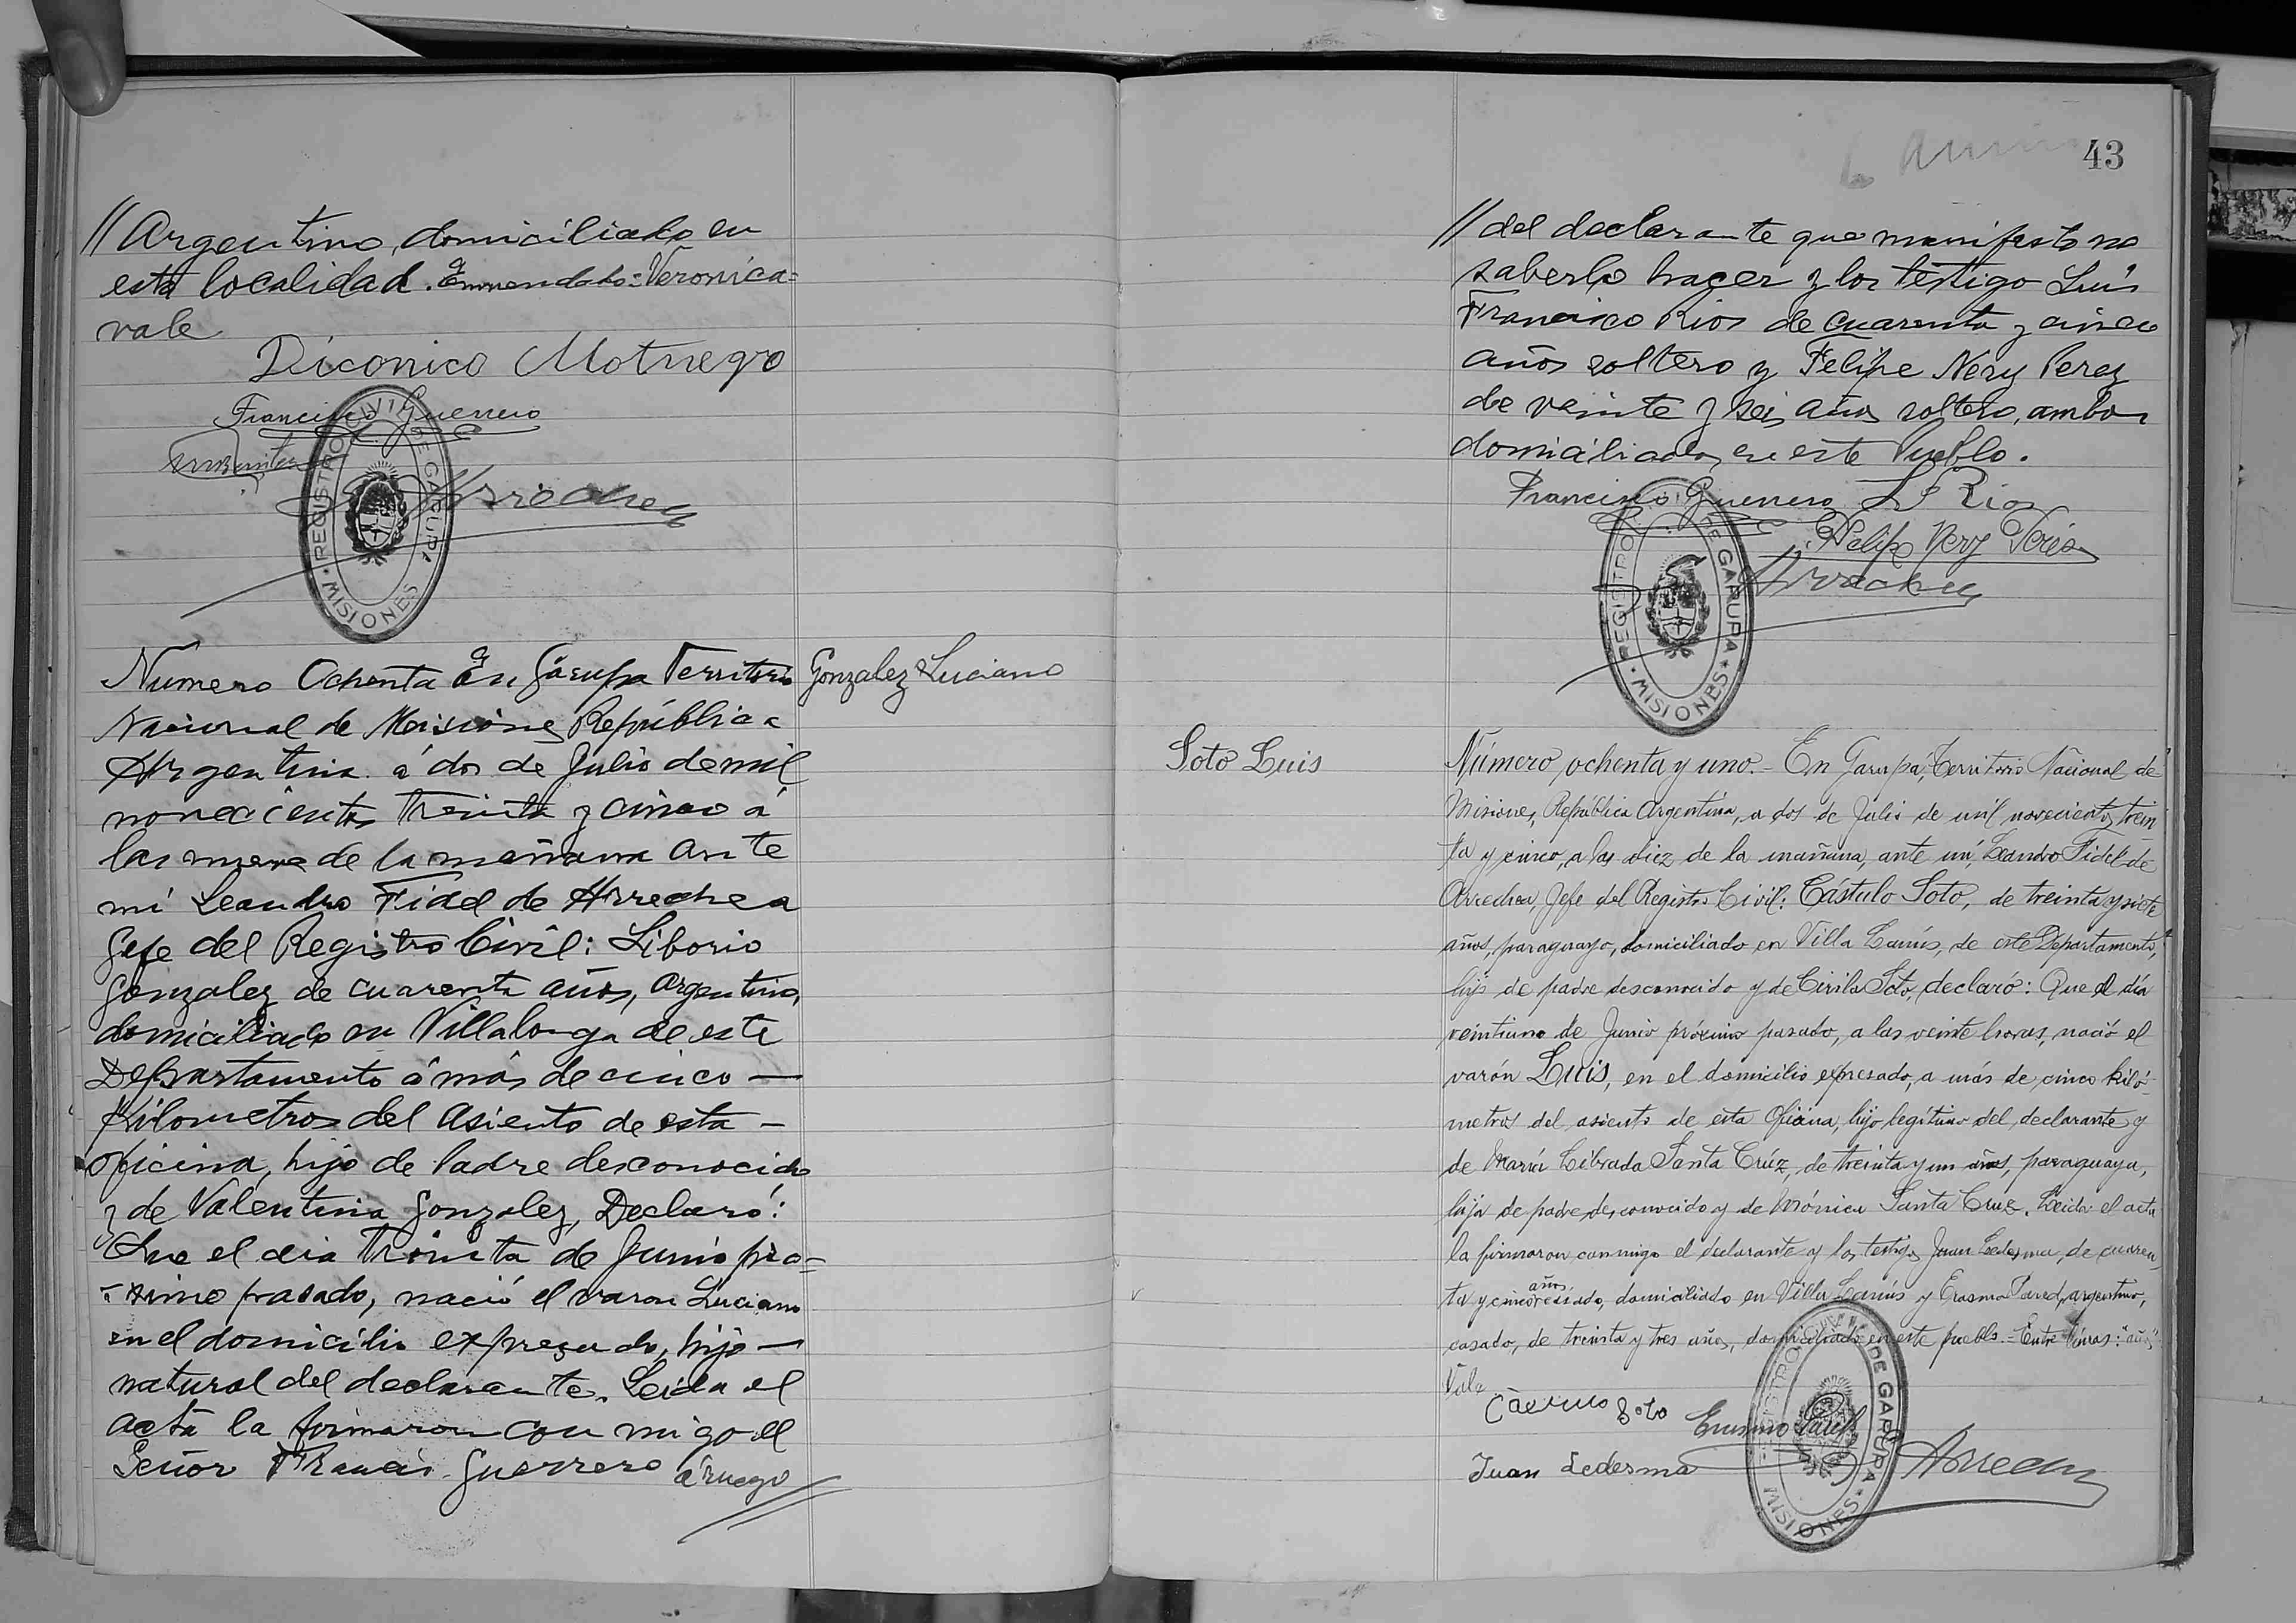 // Argentino, domiciliado en
esta localidad. Enmendado: Veronica =
vale
Diconico Motnegro
Francisco Guerrero
Arrechea
REGISTRO CIVIL DE GARUPA
* MISIONES *
Número Ochenta En Garupa Territorio
Gonzalez Luciano
Nacional de Misiones República
Argentina á dos de Julio de mil
novecientos treinta y cinco á
las nueve de la mañana ante
mi Leandro Fidel de Arrechea
Gefe del Registro Civil: Liborio
Gonzalez de cuarenta años, argentino,
domiciliado en Villalonga de este
Departamento á más de cinco —
Kilometros del asiento de esta —
oficina, hijo de Padre desconocido
y de Valentina Gonzalez, Declaró:
Que el dia treinta de Junio pró=
=ximo pasado, nació el varon Luciano
en el domicilio expresado, hijo —
natural del declarante. Leida el
acta la firmaron con migo el
Señor Francis. Guerrero á ruego //
43
// del declarante que manifesto no
saberlo hacer y los testigo Luis
Francisco Rios de cuarenta y cinco
años soltero y Felipe Nery Perez
de veinte y seis años soltero, ambos
domiciliados en este Pueblo.
Francisco Guerrero L F Rios
Felipe Nery Perés
Arrechea
REGISTRO CIVIL DE GARUPA
* MISIONES *
Soto Luis
Número ochenta y uno.- En Garupá, Territorio Nacional de
Misiones, República Argentina, a dos de Julio de mil novecientos trein
ta y cinco, a las diez de la mañana, ante mí, Leandro Fidel de
Arrechea, Jefe del Registro Civil: Cástulo Soto, de treinta y siete
años, paraguayo, domiciliado en Villa Lanús, de este Departamento,
hijo de padre desconocido y de Civila Soto, declaró: Que el día
veintiuno de Junio próximo pasado, a las veinte horas, nació el
varón Luis, en el domicilio expresado, a más de cinco kiló-
metros del asiento de esta Oficina, hijo legítimo del declarante y
de María Librada Santa Crúz, de treinta y un años, paraguaya,
hija de padre desconocido y de Mónica Santa Cruz. Leida el acta
la firmaron conmigo el declarante y los testigos Juan Ledesma, de cuaren
años
ta y cinco casado, domiciliado en Villa Lanús y Erasmo Pared, argentino,
casado, de treinta y tres años, domiciliado en este pueblo.- Entre líneas: "años"
Vale
Castulo Soto
Erasmo Pared
Juan Ledesma
Arrechea
REGISTRO CIVIL DE GARUPA
* MISIONES *